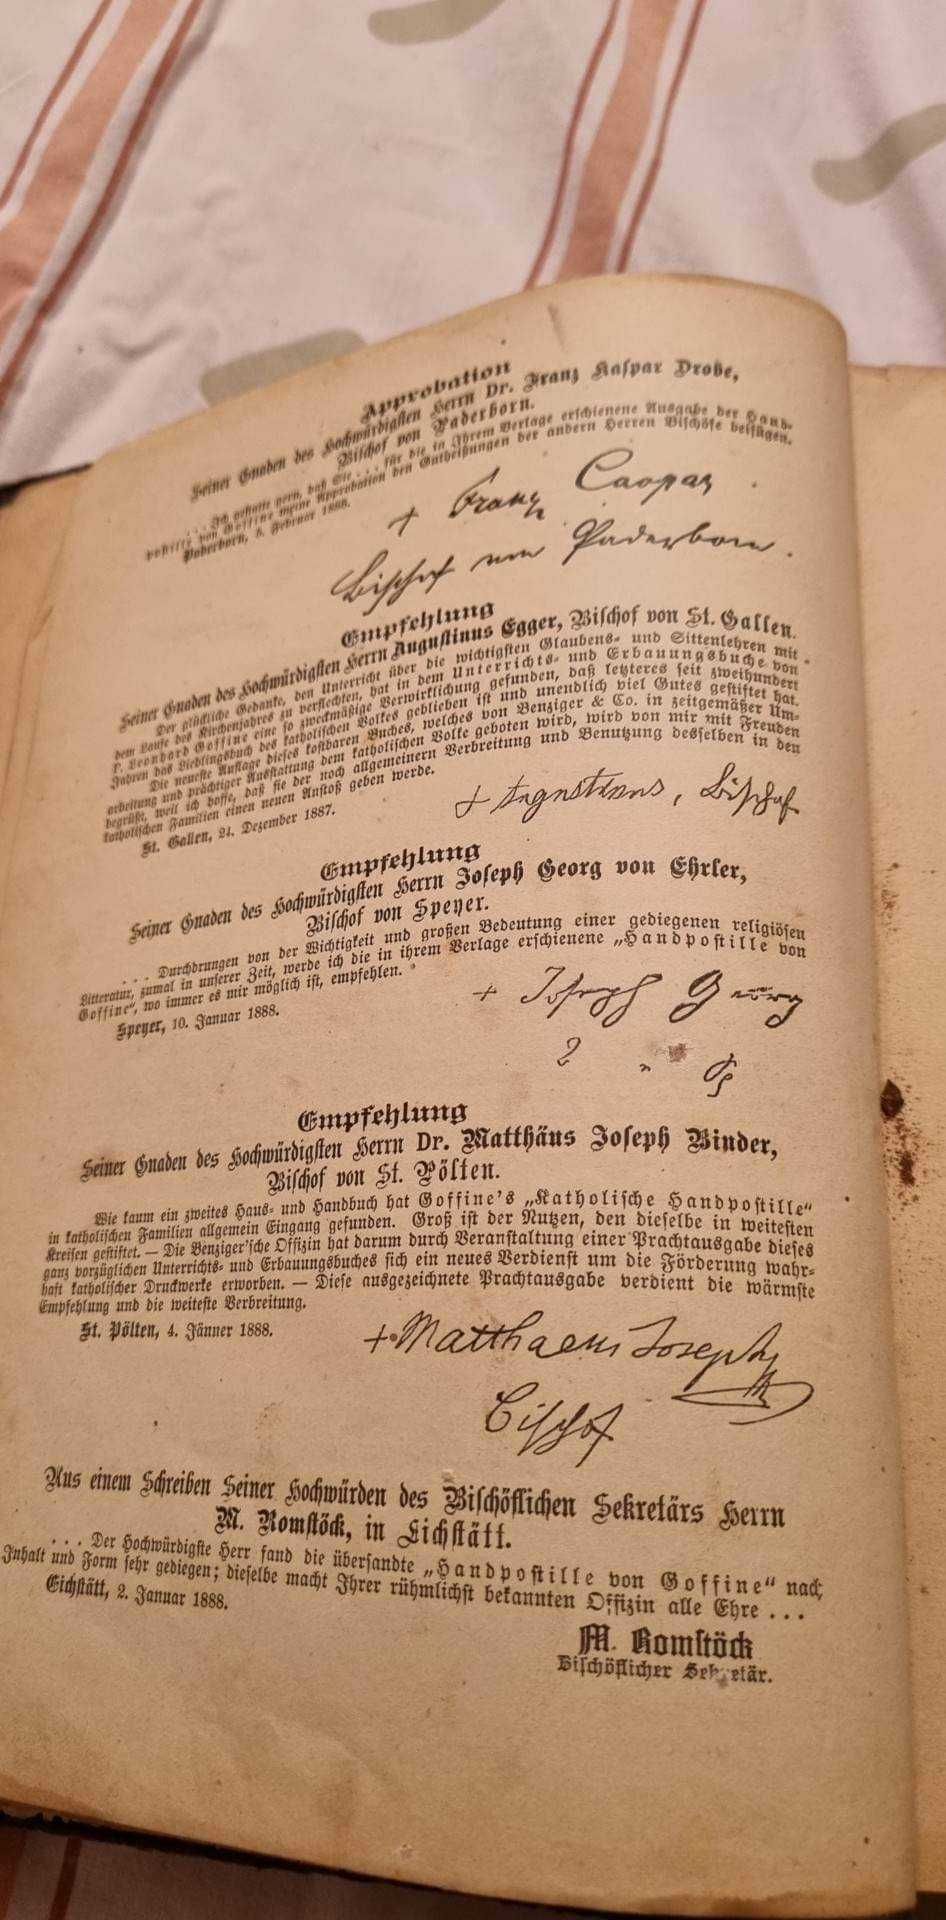 Approbation
Seiner Gnaden des Hochwürdigsten Herrn Dr. Franz Kaspar Drobe,
Bischof von Paderborn.
. . . Ich gestatte gern, daß Sie . . . für die in Ihrem Verlage erschienene Ausgabe der Hand-
postille von Goffine meine Approbation den Gutheißungen der andern Herren Bischöfe beifügen.
Paderborn, 5. Februar 1888.
+ Franz Caspar
Bischof von Paderborn.
Empfehlung
Seiner Gnaden des Hochwürdigsten Herrn Augustinus Egger, Bischof von St. Gallen.
Der glückliche Gedanke, den Unterricht über die wichtigsten Glaubens- und Sittenlehren mit
dem Laufe des Kirchenjahres zu verflechten, hat in dem Unterrichts- und Erbauungsbuche von
P. Leonhard Goffine eine so zweckmäßige Verwirklichung gefunden, daß letzteres seit zweihundert
Jahren das Lieblingsbuch des katholischen Volkes geblieben ist und unendlich viel Gutes gestiftet hat.
Die neueste Auflage dieses kostbaren Buches, welches von Benziger & Co. in zeitgemäßer Um-
arbeitung und prächtiger Ausstattung dem katholischen Volke geboten wird, wird von mir mit Freuden
begrüßt, weil ich hoffe, daß sie der noch allgemeinern Verbreitung und Benutzung desselben in den
katholischen Familien einen neuen Anstoß geben werde.
St. Gallen, 21. Dezember 1887.
+ Augustinus, Bischof
Empfehlung
Seiner Gnaden des Hochwürdigsten Herrn Joseph Georg von Ehrler,
Bischof von Speyer.
. . . Durchdrungen von der Wichtigkeit und großen Bedeutung einer gediegenen religiösen
Litteratur, zumal in unserer Zeit, werde ich die in ihrem Verlage erschienene „Handpostille von
Goffine“, wo immer es mir möglich ist, empfehlen.
Speyer, 10. Januar 1888.
+ Joseph Georg
Empfehlung
Seiner Gnaden des Hochwürdigsten Herrn Dr. Matthäus Joseph Binder,
Bischof von St. Pölten.
Wie kaum ein zweites Haus- und Handbuch hat Goffine's „Katholische Handpostille“
in katholischen Familien allgemein Eingang gefunden. Groß ist der Nutzen, den dieselbe in weitesten
Kreisen gestiftet. — Die Benziger'sche Offizin hat darum durch Veranstaltung einer Prachtausgabe dieses
ganz vorzüglichen Unterrichts- und Erbauungsbuches sich ein neues Verdienst um die Förderung wahr-
haft katholischer Druckwerke erworben. — Diese ausgezeichnete Prachtausgabe verdient die wärmste
Empfehlung und die weiteste Verbreitung.
St. Pölten, 4. Jänner 1888.
+ Matthaeus Joseph
Bischof
Aus einem Schreiben Seiner Hochwürden des Bischöflichen Sekretärs Herrn
M. Romstöck, in Eichstätt.
. . . Der Hochwürdigste Herr fand die übersandte „Handpostille von Goffine“ nach
Inhalt und Form sehr gediegen; dieselbe macht Ihrer rühmlichst bekannten Offizin alle Ehre . . .
Eichstätt, 2. Januar 1888.
M. Romstöck
Bischöflicher Sekretär.